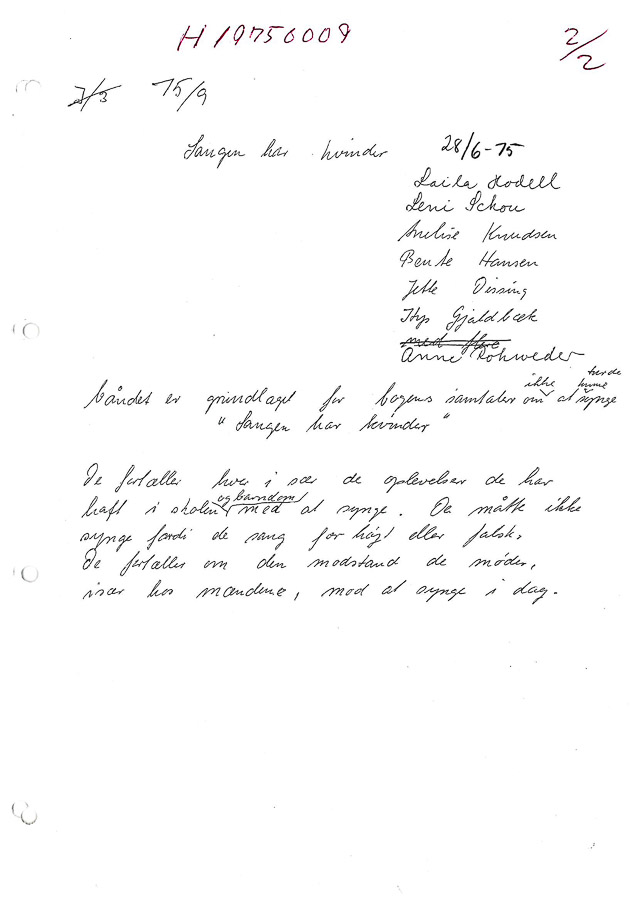 H 19756009
2/2
3/3 75/9
Sangen har kvinder 28/6-75
Laila Hodell
Leni Schou
Anelise Knudsen
Bente Hansen
Jette Dissing
Gjaldbæk
med flere
Anne Rohweder
turde
ikke kunne
båndet er grundlaget for bogens samtaler om at synge
"Sangen har kvinder"
De fortæller hver i sær de oplevelser de har
og barndom
haft i skolen med at synge. De måtte ikke
synge fordi de sang for højt eller falsk.
De fortæller om den modstand de møder,
især hos mændene, mod at synge i dag.